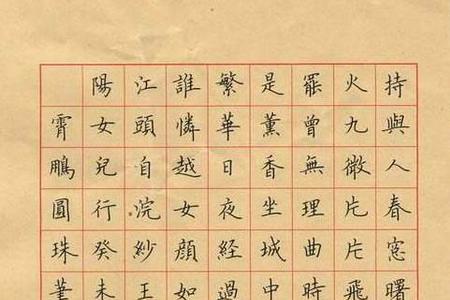 持與人春窓曙
火九微片片飛
罷曾無理曲時
是薰香坐城中
繁華日夜経過
誰憐越女顔如
江頭自浣紗王
陽女兒行癸未
霄鵬圓珠筆